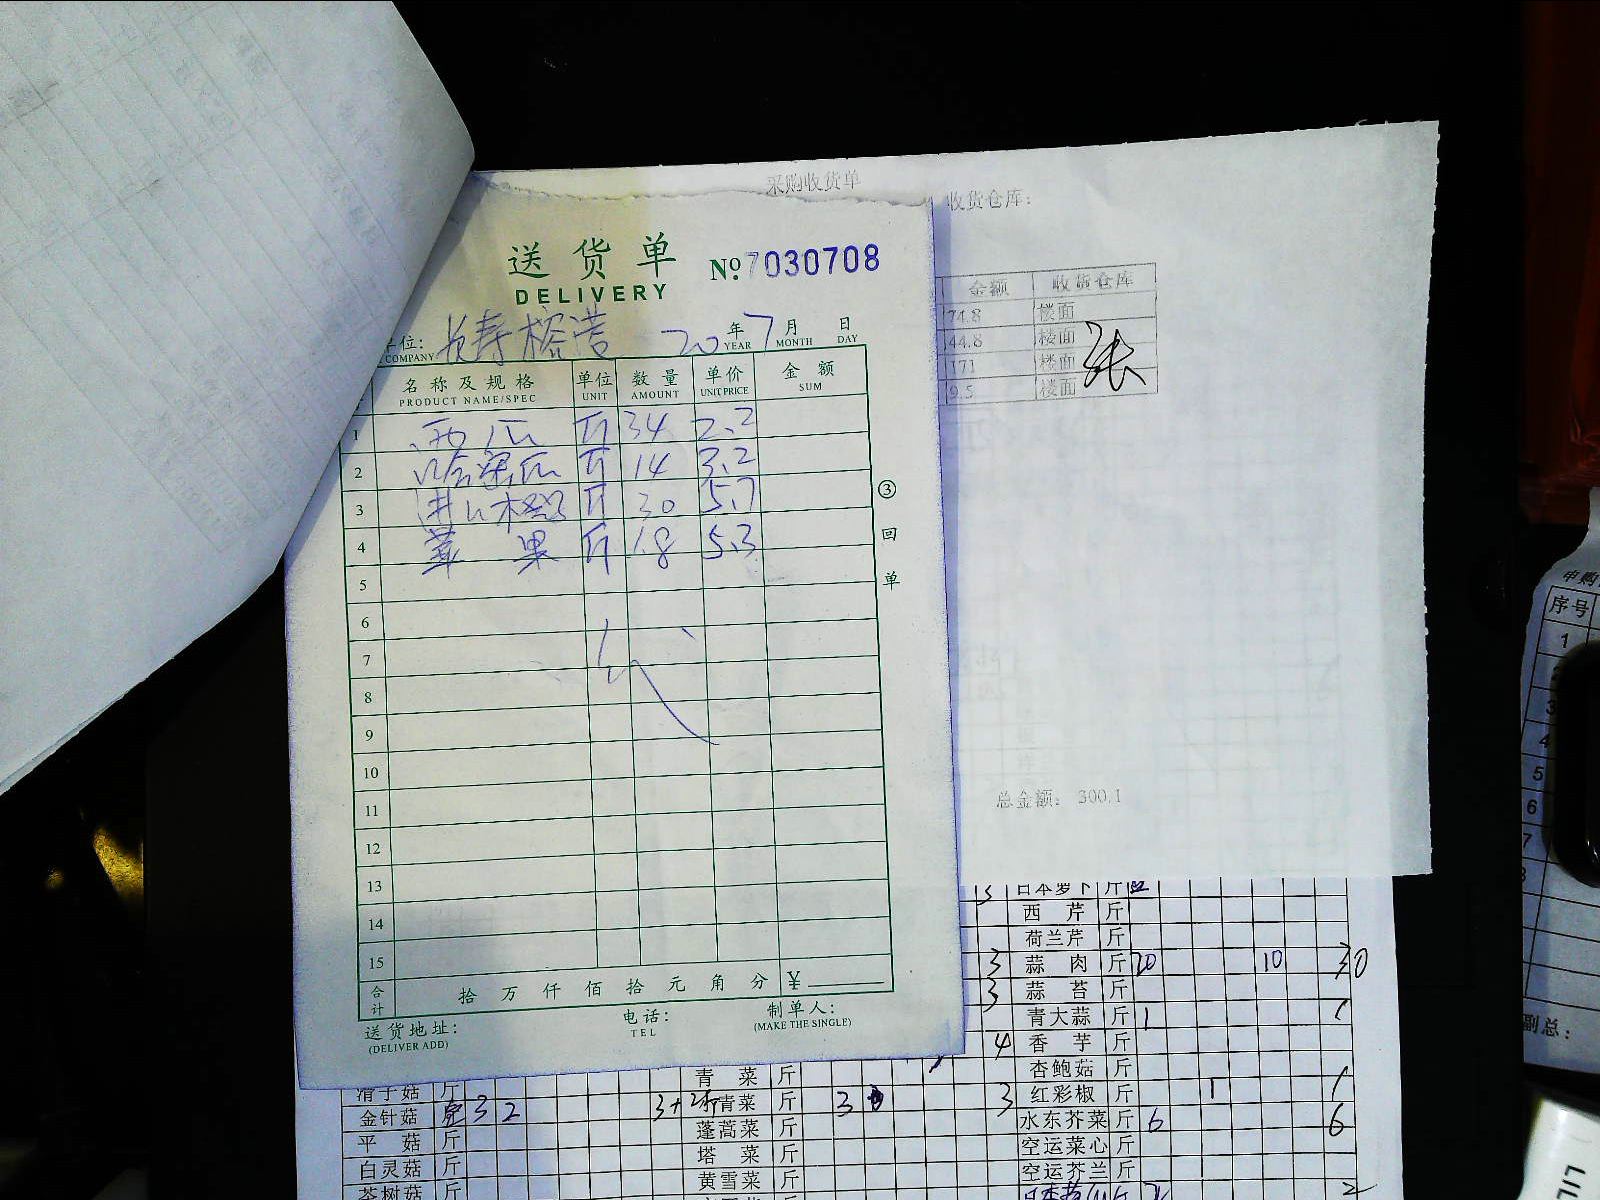 采购收货单
收货仓库:
送货单 № 7030708
DELIVERY
金额 收货仓库
74.8 楼面
44.8 楼面
171 楼面
9.5 楼面
单位: 长寿榕 20 年 7 月 日
COMPANY YEAR MONTH DAY
名称及规格 单位 数量 单价 金额
PRODUCT NAME/SPEC UNIT AMOUNT UNIT PRICE SUM
1 西瓜 斤 34 2.2
2 哈密瓜 斤 14 3.2
3 进口橙 斤 30 5.7
4 苹果 斤 1.8 5.3
③回单
5
6
7
8
9
10
11
12
13
14
15
合计 拾 万 仟 佰 拾 元 角 分 ¥
送货地址: 电话: 制单人:
(DELIVER ADD) TEL (MAKE THE SINGLE)
总金额: 300.1
3 日本萝卜 斤
西芹 斤
荷兰芹 斤
3 蒜肉 斤 20 10 30
3 蒜苔 斤
青大蒜 斤 1 1
4 香芋 斤
青菜 斤 杏鲍菇 斤
滑子菇 斤 青菜 斤 3 3 红彩椒 斤 1 1
金针菇 3 2 蓬蒿菜 斤 水东芥菜 斤 6 6
平菇 斤 塔菜 斤 空运菜心 斤
白灵菇 斤 黄雪菜 斤 空运芥兰 斤
茶树菇 斤
申购
序号
1
3
4
5
6
7
副总: